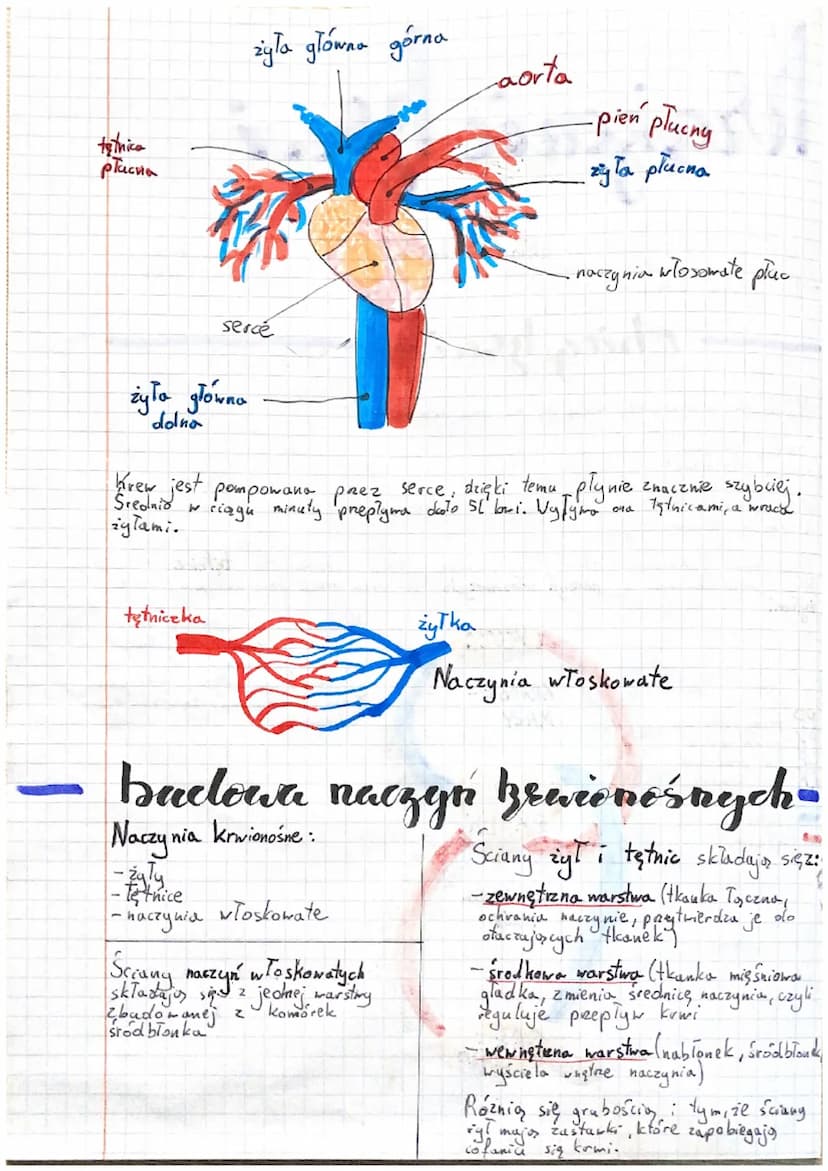 żyła główna górna
aorta
pień płucny
tętnica
płucna
żyła płucna
naczynia włosowate płuc
serce
żyła główna
dolna
Krew jest pompowana przez serce, dzięki temu płynie znacznie szybciej.
Średnio w ciągu minuty przepływa około 5L krwi. Wypływa ona tętnicami, a wraca
żyłami.
tętniczka
żyłka
Naczynia włoskowate
budowa naczyń krwionośnych
Naczynia krwionośne:
- żyły
- tętnice
- naczynia włoskowate
Ściany naczyń włoskowatych
składają się z jednej warstwy
zbudowanej z komórek
śródbłonka
Ściany żył i tętnic składają się z:
- zewnętrzna warstwa (tkanka łączna,
ochrania naczynie, przytwierdza je do
otaczających tkanek)
- środkowa warstwa (tkanka mięśniowa
gładka, zmienia średnicę naczynia, czyli
reguluje przepływ krwi
- wewnętrzna warstwa (nabłonek, śródbłonek,
wyściela wnętrze naczynia)
Różnią się grubością i tym, że ściany
żył mają zastawki, które zapobiegają
cofaniu się krwi.